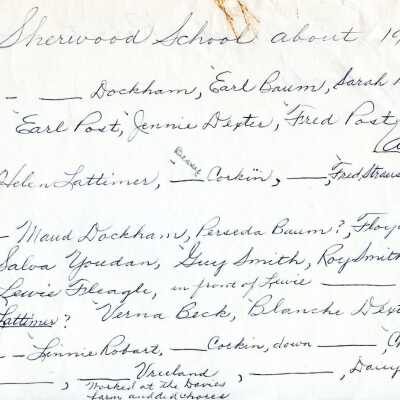 Sherwood School about 19
- - ___ Dockham, Earl Baum, Sarah
Earl Post, Jennie Dexter, Fred Post
Helen Lattimer, ___ Corkin, ___, Fred Straus
- Maud Dockham, Perseda Baum?, Floy
Salva Youdan, Guy Smith, Roy Smith
Lewis Fleagle, in front of Lewis ___
Lattimer? Verna Beck, Blanche Dext
- - Linnie Robart, ___ Corkin, down ___, C
___, ___ Vrieland, ___, Daisy
Worked at the Davies
farm and did chores